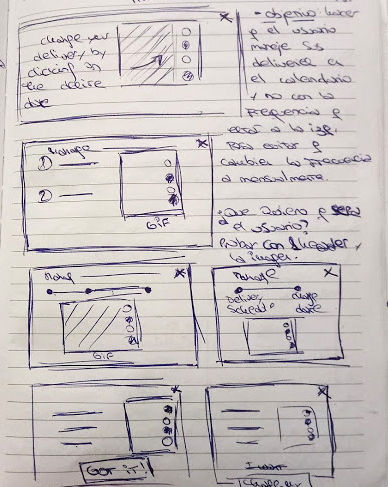 change your
delivery by
clicking on
the desire
date
- Objetivo: hacer
q el usuario
maneje sus
deliveries en
el calendario
y no con la
frecuencia q
está a la izq.
Para evitar q
cambien la frecuencia
a mensualmente.
Manage
1
2
GIF
¿Que quiero q sepa
el usuario?
Probar con 1 header,
la imagen.
Manage
GIF
Manage
delivery
schedule
change
date
GOT IT!
I want